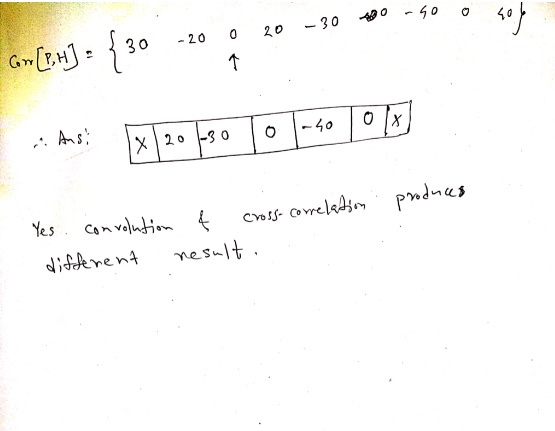 Corr[P,H] = { 30 -20 0 20 -30 0 -40 0 40 }
↑
∴ Ans: X 20 -30 0 -40 0 X
Yes. convolution & cross-correlation produces
different result.